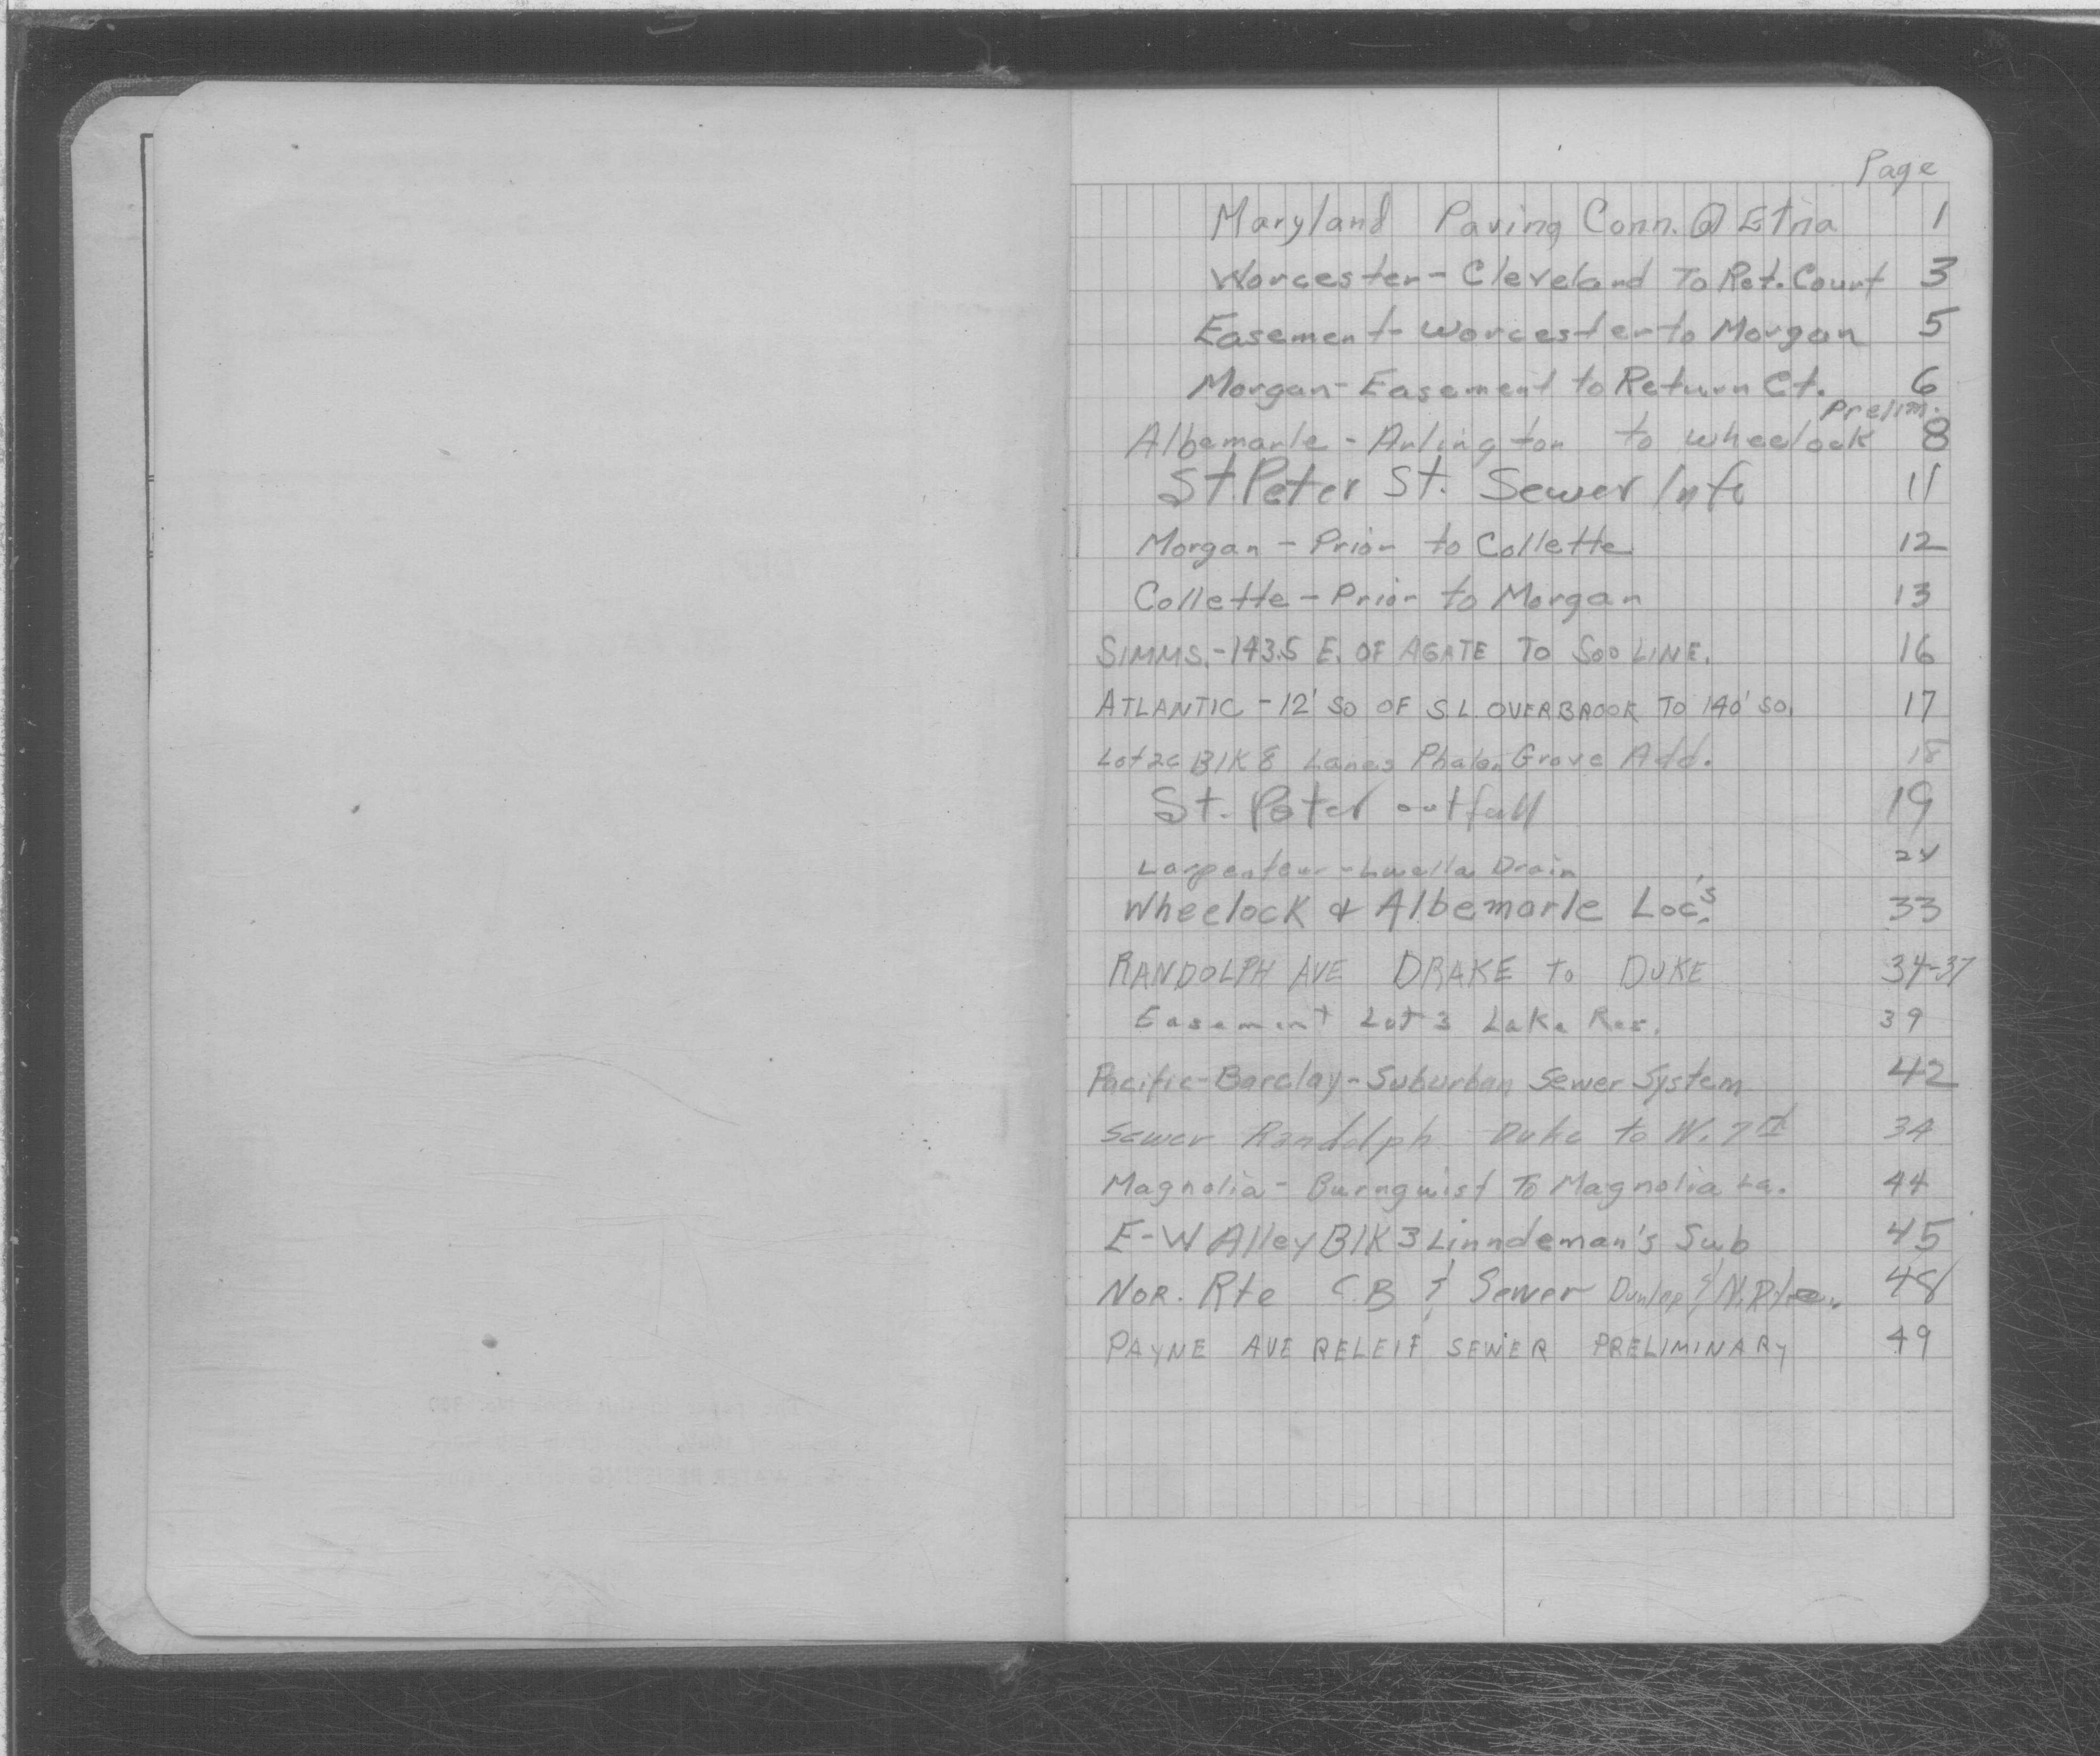 Page
Maryland Paving Conn. @ Etna 1
Worcester - Cleveland To Ret. Court 3
Easement - Worcester to Morgan 5
Morgan - Easement to Return Ct. 6
Prelim.
Albemarle - Arlington to Wheelock 8
St Peter St. Sewer Info 11
Morgan - Prior to Collette 12
Collette - Prior to Morgan 13
SIMMS. - 143.5 E. OF AGATE TO SOO LINE. 16
ATLANTIC - 12' SO OF S.L. OVERBROOK TO 140' SO. 17
Blk 8 Lanes Phalen Grove Add. 18
St. Peter outfall 19
Larpenteur - Luella Drain 24
Wheelock & Albemarle Loc's. 33
RANDOLPH AVE DRAKE to DUKE 34-37
Easement Lot 3 Lake Res. 39
Pacific - Barclay - Suburban Sewer System 42
Sewer Randolph Duke to W. 7th 34
Magnolia - Burnquist To Magnolia La. 44
E-W Alley Blk 3 Linndeman's Sub 45
NOR. Rte C.B & Sewer Dunlap & 48
PAYNE AVE RELEIF SEWER PRELIMINARY 49